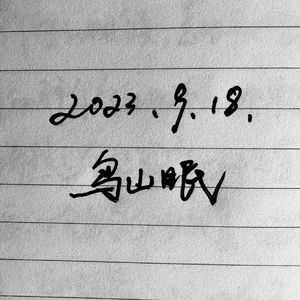 2023、9.18.
鸟山眠